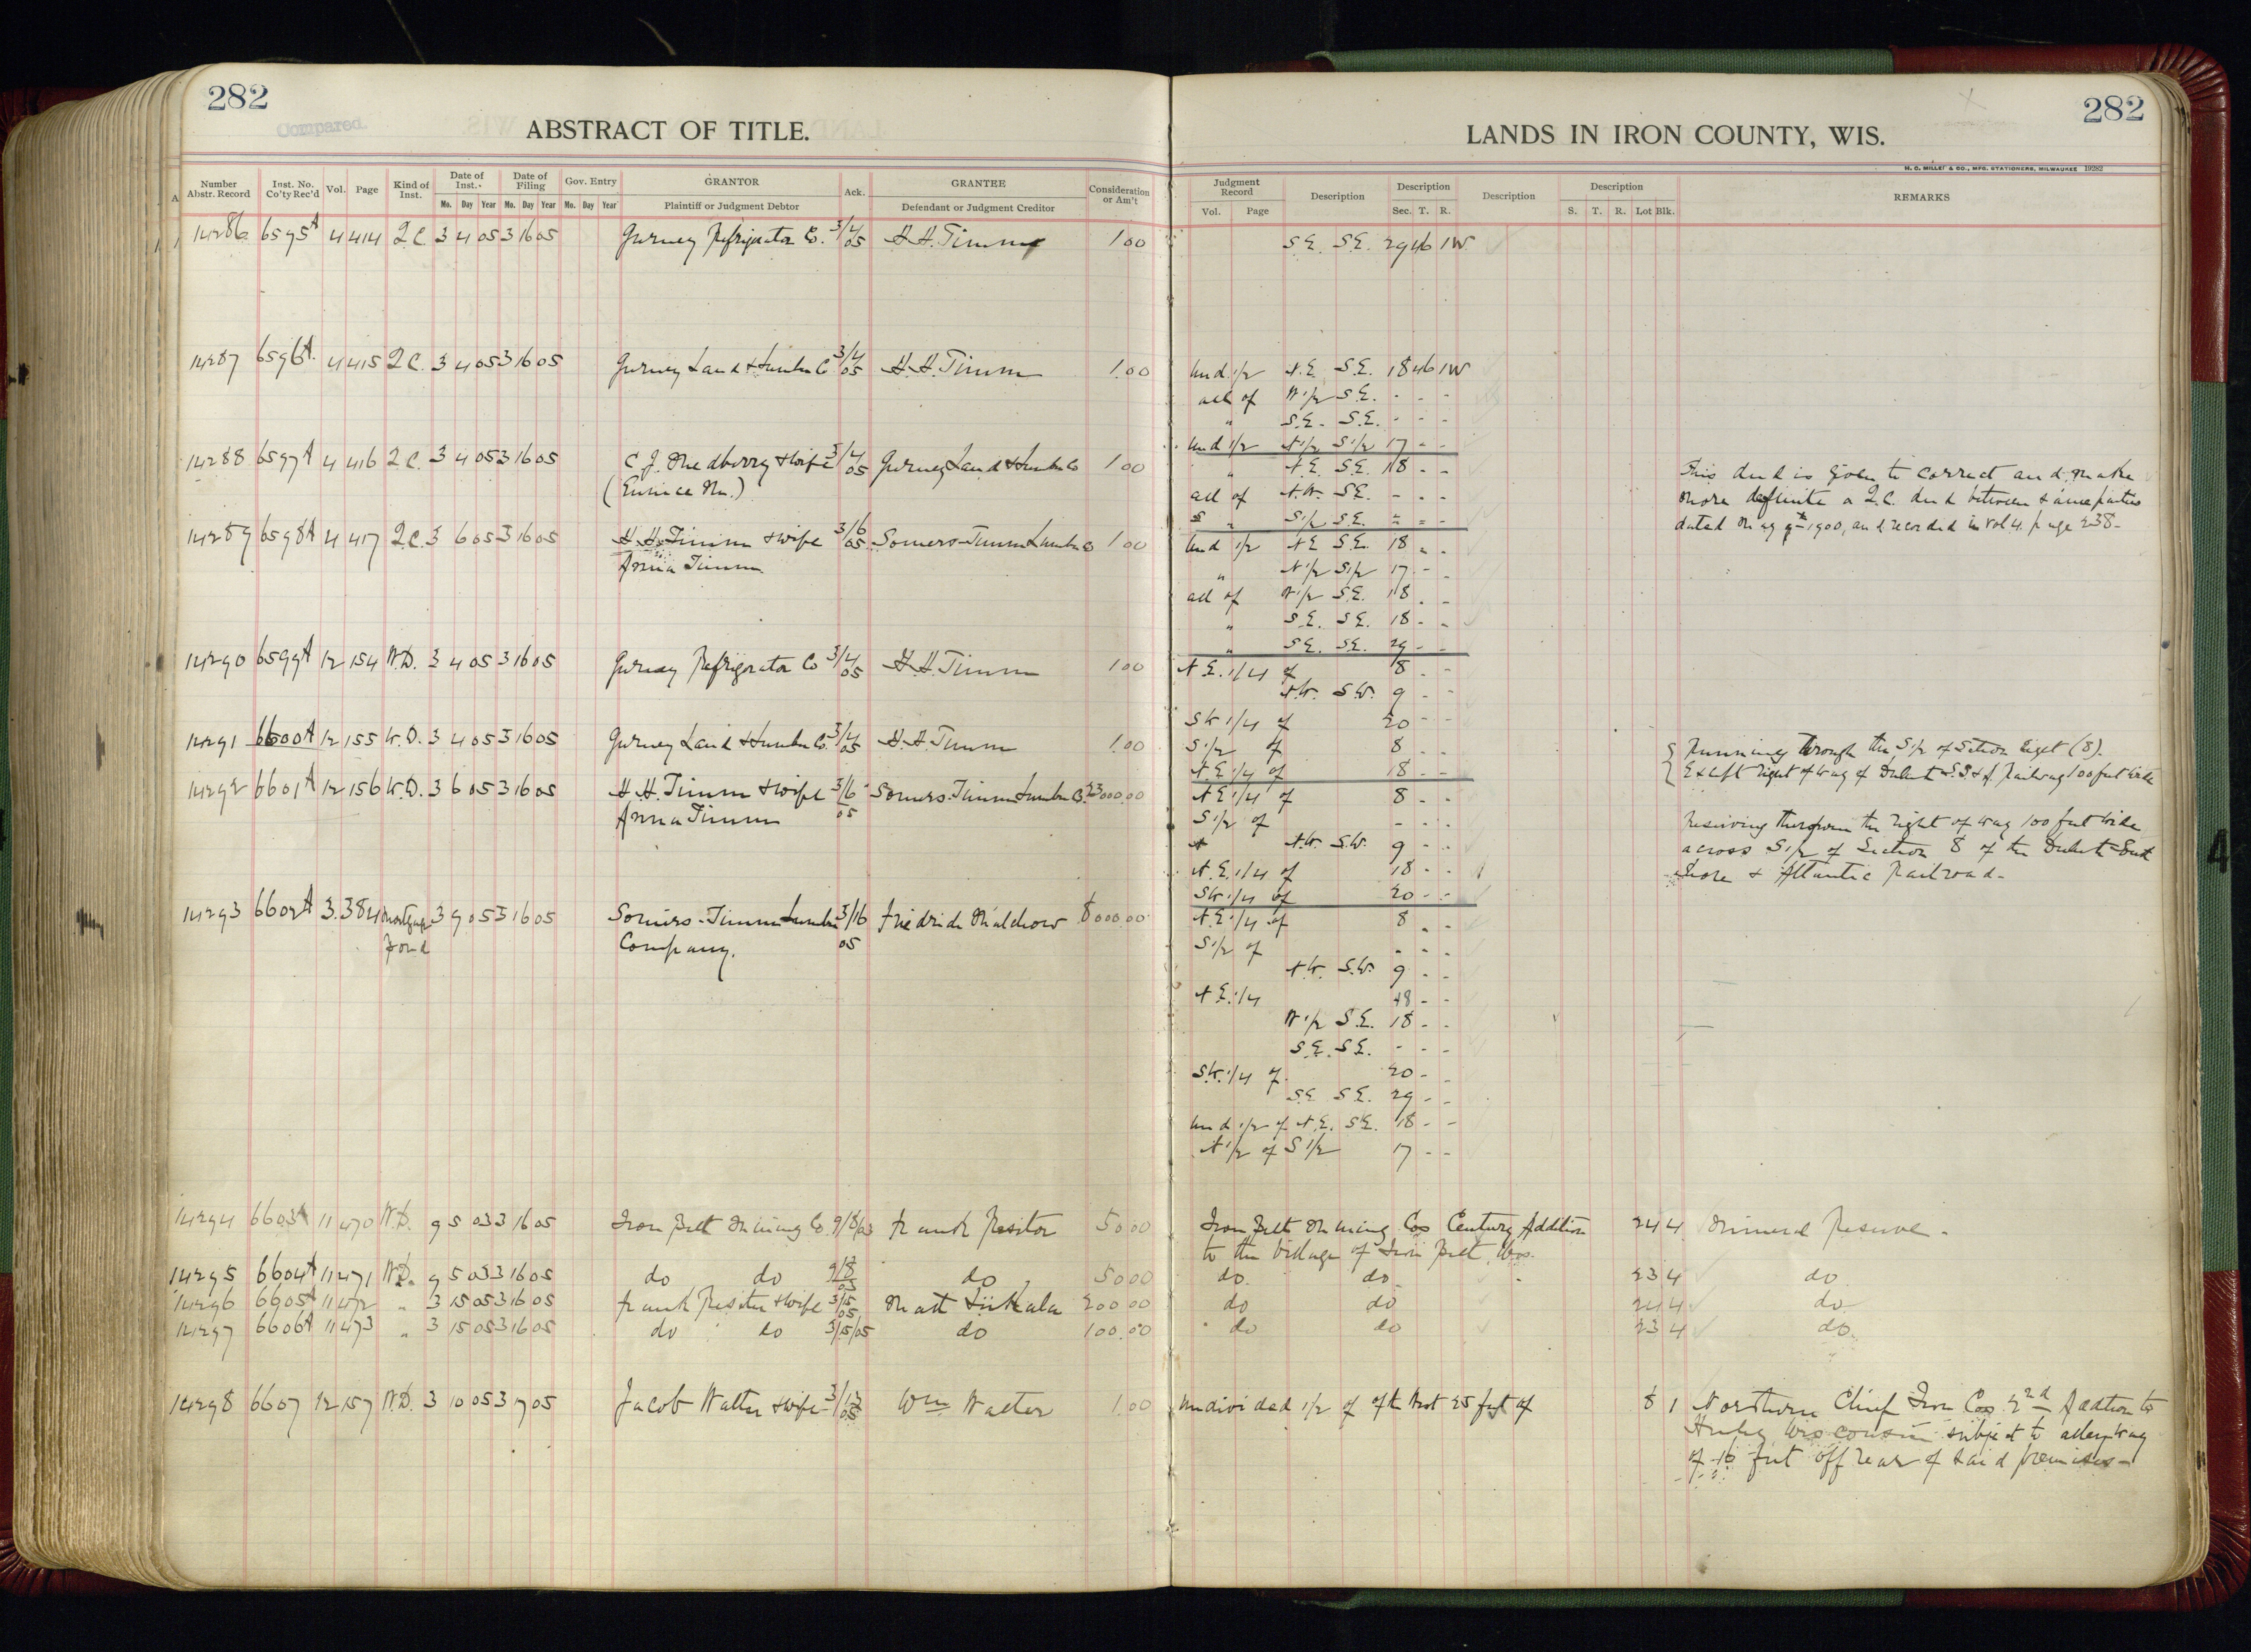 282
Compared.
ABSTRACT OF TITLE.
Number Abstr. Record | Inst. No. Co'ty Rec'd | Vol. | Page | Kind of Inst. | Date of Inst. Mo. Day Year | Date of Filing Mo. Day Year | Gov. Entry Mo. Day Year | GRANTOR Plaintiff or Judgment Debtor | Ack. | GRANTEE Defendant or Judgment Creditor | Consideration or Am't
14286 6595A 4 414 Q.C. 3 4 05 3 16 05 Gurney Refrigerator Co. 3/4/05 H.H. Timm 1.00
14287 6596A 4 415 Q.C. 3 4 05 3 16 05 Gurney Land & Lumber Co 3/4/05 H.H. Timm 1.00
14288 6597A 4 416 Q.C. 3 4 05 3 16 05 C.J. Medberry & wife 3/4/05 Gurney Land & Lumber Co 1.00
(Eunice M.)
14289 6598A 4 417 Q.C. 3 6 05 3 16 05 H.H. Timm & wife 3/6/05 Somers-Timm Lumber Co 1.00
Anna Timm
14290 6599A 12 154 W.D. 3 4 05 3 16 05 Gurney Refrigerator Co 3/4/05 H.H. Timm 1.00
14291 6600A 12 155 W.D. 3 4 05 3 16 05 Gurney Land & Lumber Co. 3/4/05 H.H. Timm 1.00
14292 6601A 12 156 W.D. 3 6 05 3 16 05 H.H. Timm & wife 3/6/05 Somers-Timm Lumber Co. 23000.00
Anna Timm
14293 6602A 3 384 Mortgage 3 9 05 3 16 05 Somers-Timm Lumber 3/16/05 Friedrich 8000.00
Company.
14294 6603A 11 470 W.D. 9 5 03 3 16 05 Iron Belt Mining Co. 9/8/03 Frank Resitor 50.00
14295 6604A 11 471 W.D. 9 5 03 3 16 05 do do 9/8/03 do 50.00
14296 6605A 11 472 " 3 15 05 3 16 05 Frank Resitor & wife 3/15/05 Matt 200.00
14297 6606A 11 473 " 3 15 05 3 16 05 do do 3/15/05 do 100.00
14298 6607 12 157 W.D. 3 10 05 3 17 05 Jacob Walter & wife 3/13/05 Wm Walter 1.00
282
LANDS IN IRON COUNTY, WIS.
H. C. MILLER & CO., MFG. STATIONERS, MILWAUKEE 19282
Judgment Record Vol. Page | Description | Description Sec. T. R. | Description | Description S. T. R. Lot Blk. | REMARKS
S.E. S.E. 29 46 1W
Und. 1/2 N.E. S.E. 18 46 1W
all of W 1/2 S.E. - - -
" S.E. S.E. - - -
Und 1/2 N 1/2 S 1/2 17 - -
" N.E. S.E. 18 - -
all of N.W. S.E. - - -
" S 1/2 S.E. - - -
This deed is given to correct and make
more definite a Q.C. deed between same parties
dated May 9th 1900, and recorded in Vol 4. page 238-
Und 1/2 N.E. S.E. 18 - -
" N 1/2 S 1/2 17 - -
all of W 1/2 S.E. 18 - -
" S.E. S.E. 18 - -
" S.E. S.E. 29 - -
N.E. 1/4 of 8 - -
N.W. S.W. 9 - -
SW 1/4 of 20 - -
S 1/2 of 8 - -
N.E. 1/4 of 18 - -
Running through the S 1/2 of Section Eight (8).
Except right of way of Duluth S.S. & A. Railway 100 feet wide
N.E. 1/4 of 8 - -
S 1/2 of - - -
N.W. S.W. 9 - -
N.E. 1/4 of 18 - -
SW 1/4 of 20 - -
Reserving therefrom the right of way 100 feet wide
across S 1/2 of Section 8 of the Duluth South
Shore & Atlantic Railroad-
N.E. 1/4 of 8 - -
S 1/2 of - - -
N.W. S.W. 9 - -
N.E. 1/4 18 - -
W 1/2 S.E. 18 - -
S.E. S.E. - - -
S.W. 1/4 of 20 - -
S.E. S.E. 29 - -
und 1/2 of N.E. S.E. 18 - -
N 1/2 of S 1/2 17 - -
Iron Belt Mining Cos Century Addition 24 4 Mineral Reserve -
to the Village of Iron Belt, Wis.
do do 23 4 do
do do 24 4 do
do do 23 4 do
undivided 1/2 of of the West 25 feet of 8 1 Northern Chief Iron Cos 2nd Addition to
Hurley Wisconsin subject to alleyway
of 16 feet off rear of said premises-